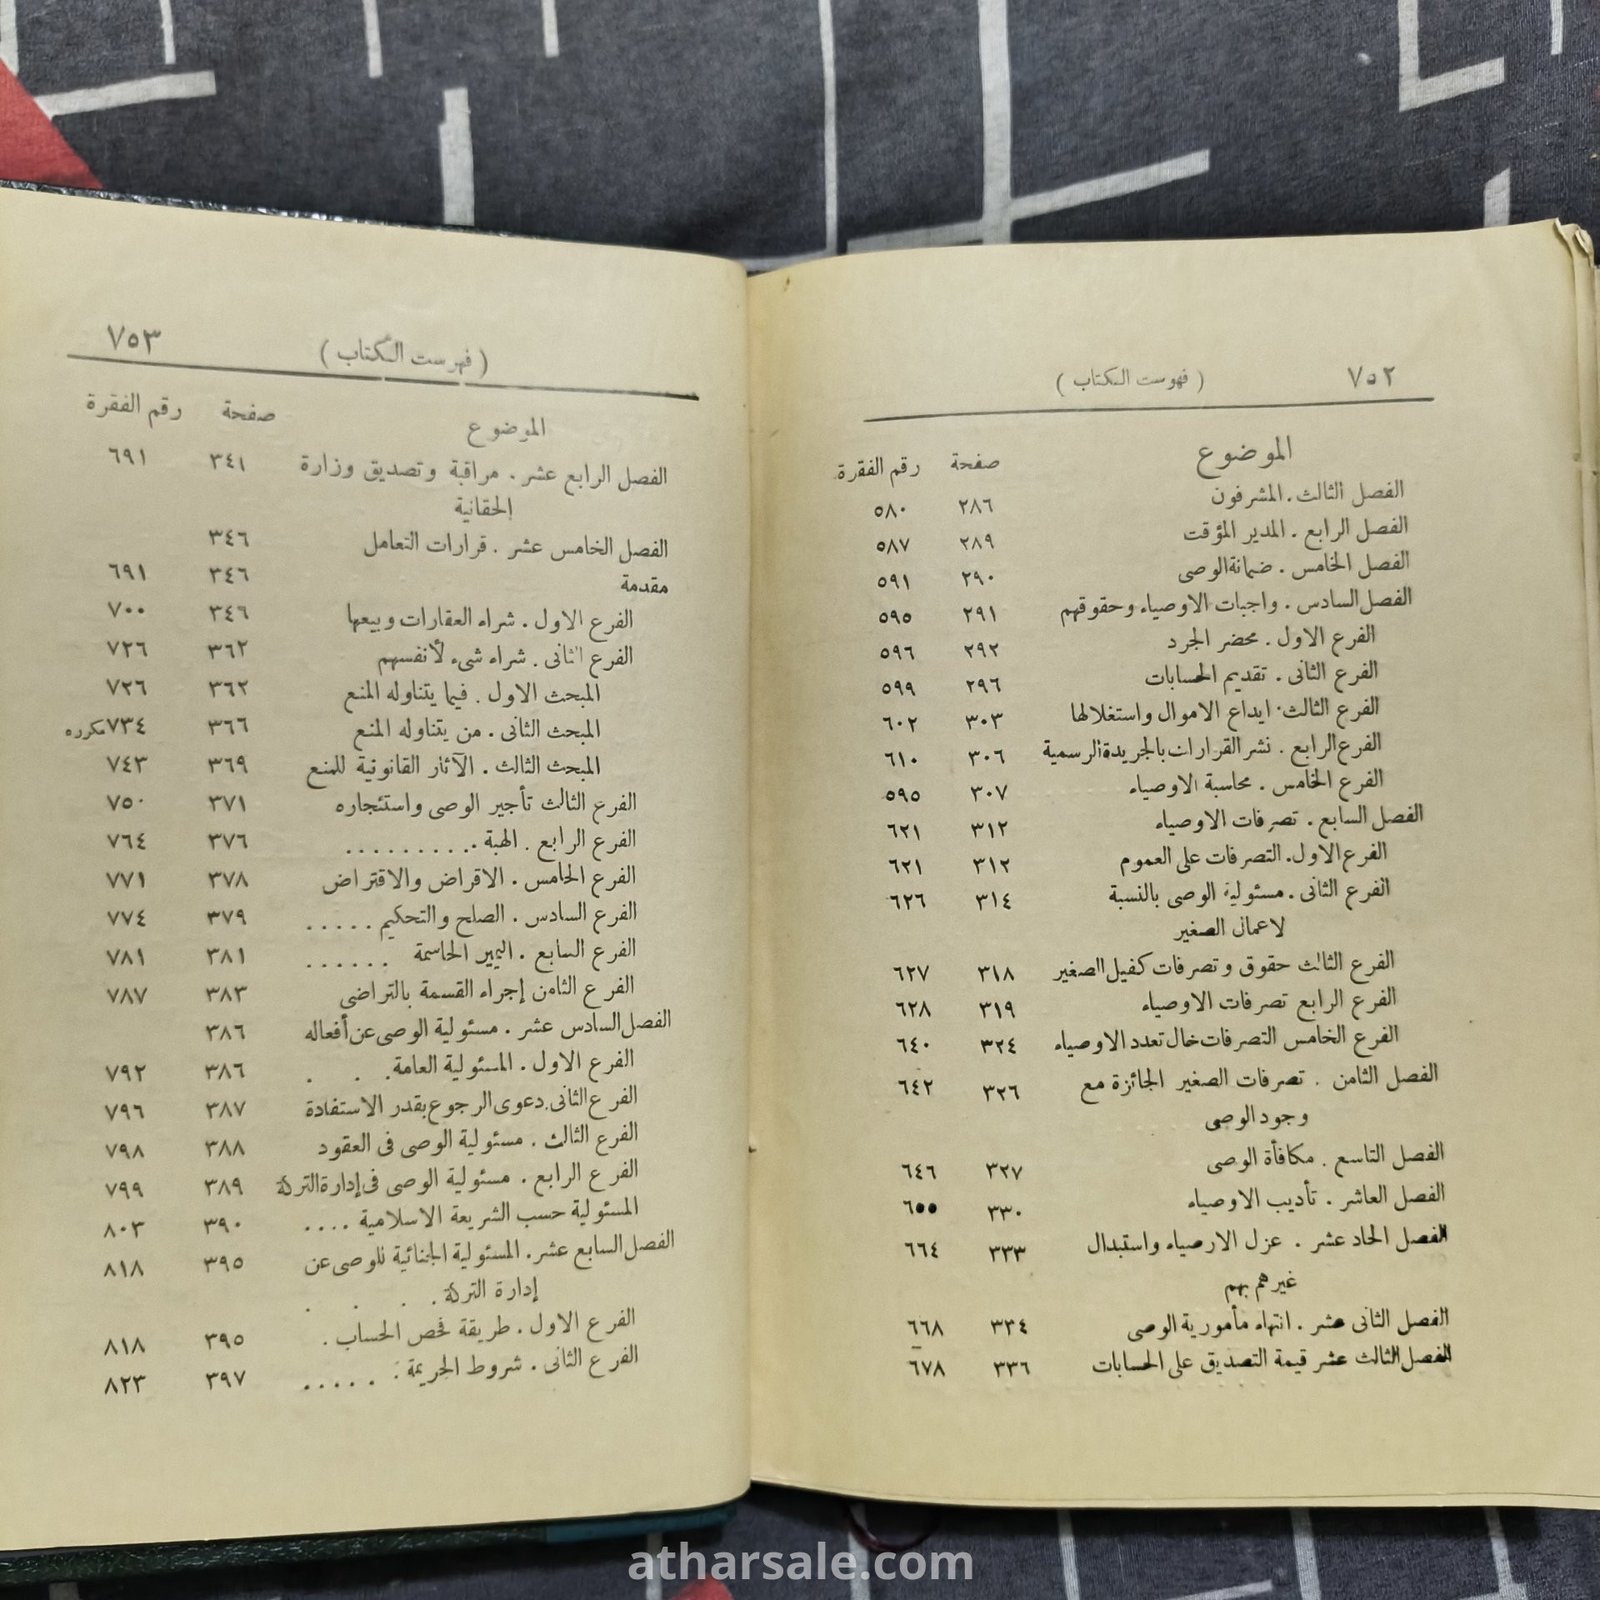 ٧٥٢ ( فهرست الكتاب )
الموضوع صفحة رقم الفقرة
الفصل الثالث . المشرفون ٢٨٦ ٥٨٠
الفصل الرابع . المدير المؤقت ٢٨٩ ٥٨٧
الفصل الخامس . ضمانة الوصى ٢٩٠ ٥٩١
الفصل السادس . واجبات الاوصياء وحقوقهم ٢٩١ ٥٩٥
الفرع الاول . محضر الجرد ٢٩٢ ٥٩٦
الفرع الثانى . تقديم الحسابات ٢٩٦ ٥٩٩
الفرع الثالث . ايداع الاموال واستغلالها ٣٠٣ ٦٠٢
الفرع الرابع . نشر القرارات بالجريدة الرسمية ٣٠٦ ٦١٠
الفرع الخامس . محاسبة الاوصياء ٣٠٧ ٥٩٥
الفصل السابع . تصرفات الاوصياء ٣١٢ ٦٢١
الفرع الاول . التصرفات على العموم ٣١٢ ٦٢١
الفرع الثانى . مسئولية الوصى بالنسبة ٣١٤ ٦٢٦
لاعمال الصغير
الفرع الثالث حقوق وتصرفات كفيل الصغير ٣١٨ ٦٢٧
الفرع الرابع تصرفات الاوصياء ٣١٩ ٦٢٨
الفرع الخامس التصرفات خال تعدد الاوصياء ٣٢٤ ٦٤٠
الفصل الثامن . تصرفات الصغير الجائزة مع ٣٢٦ ٦٤٢
وجود الوصى
الفصل التاسع . مكافأة الوصى ٣٢٧ ٦٤٦
الفصل العاشر . تأديب الاوصياء ٣٣٠ ٦٥٥
الفصل الحاد عشر . عزل الارصياء واستبدال ٣٣٣ ٦٦٤
غيرهم بهم
الفصل الثانى عشر . انتهاء مأمورية الوصى ٣٣٤ ٦٦٨
الفصل الثالث عشر قيمة التصديق على الحسابات ٣٣٦ ٦٧٨
( فهرست الكتاب ) ٧٥٣
الموضوع صفحة رقم الفقرة
الفصل الرابع عشر . مراقبة وتصديق وزارة ٣٤١ ٦٩١
الحقانية
الفصل الخامس عشر . قرارات التعامل ٣٤٦
مقدمة ٣٤٦ ٦٩١
الفرع الاول . شراء العقارات وبيعها ٣٤٦ ٧٠٠
الفرع الثانى . شراء شىء لأنفسهم ٣٦٢ ٧٢٦
المبحث الاول . فيما يتناوله المنع ٣٦٢ ٧٢٦
المبحث الثانى . من يتناوله المنع ٣٦٦ ٧٣٤ مكرره
المبحث الثالث . الآثار القانونية للمنع ٣٦٩ ٧٤٣
الفرع الثالث تأجير الوصى واستئجاره ٣٧١ ٧٥٠
الفرع الرابع . الهبة . . . . . . . . . . ٣٧٦ ٧٦٤
الفرع الخامس . الاقراض والاقتراض ٣٧٨ ٧٧١
الفرع السادس . الصلح والتحكيم . . . . . ٣٧٩ ٧٧٤
الفرع السابع . اليمين الحاسمة . . . . . . ٣٨١ ٧٨١
الفرع الثامن إجراء القسمة بالتراضى ٣٨٣ ٧٨٧
الفصل السادس عشر . مسئولية الوصى عن أفعاله ٣٨٦
الفرع الاول . المسئولية العامة . . . ٣٨٦ ٧٩٢
الفرع الثانى . دعوى الرجوع بقدر الاستفادة ٣٨٧ ٧٩٦
الفرع الثالث . مسئولية الوصى فى العقود ٣٨٨ ٧٩٨
الفرع الرابع . مسئولية الوصى فى إدارة التركة ٣٨٩ ٧٩٩
المسئولية حسب الشريعة الاسلامية . . . . ٣٩٠ ٨٠٣
الفصل السابع عشر . المسئولية الجنائية للوصى عن ٣٩٥ ٨١٨
إدارة التركة . . . .
الفرع الاول . طريقة فحص الحساب . ٣٩٥ ٨١٨
الفرع الثانى . شروط الجريمة . . . . . . ٣٩٧ ٨٢٣
atharsale.com